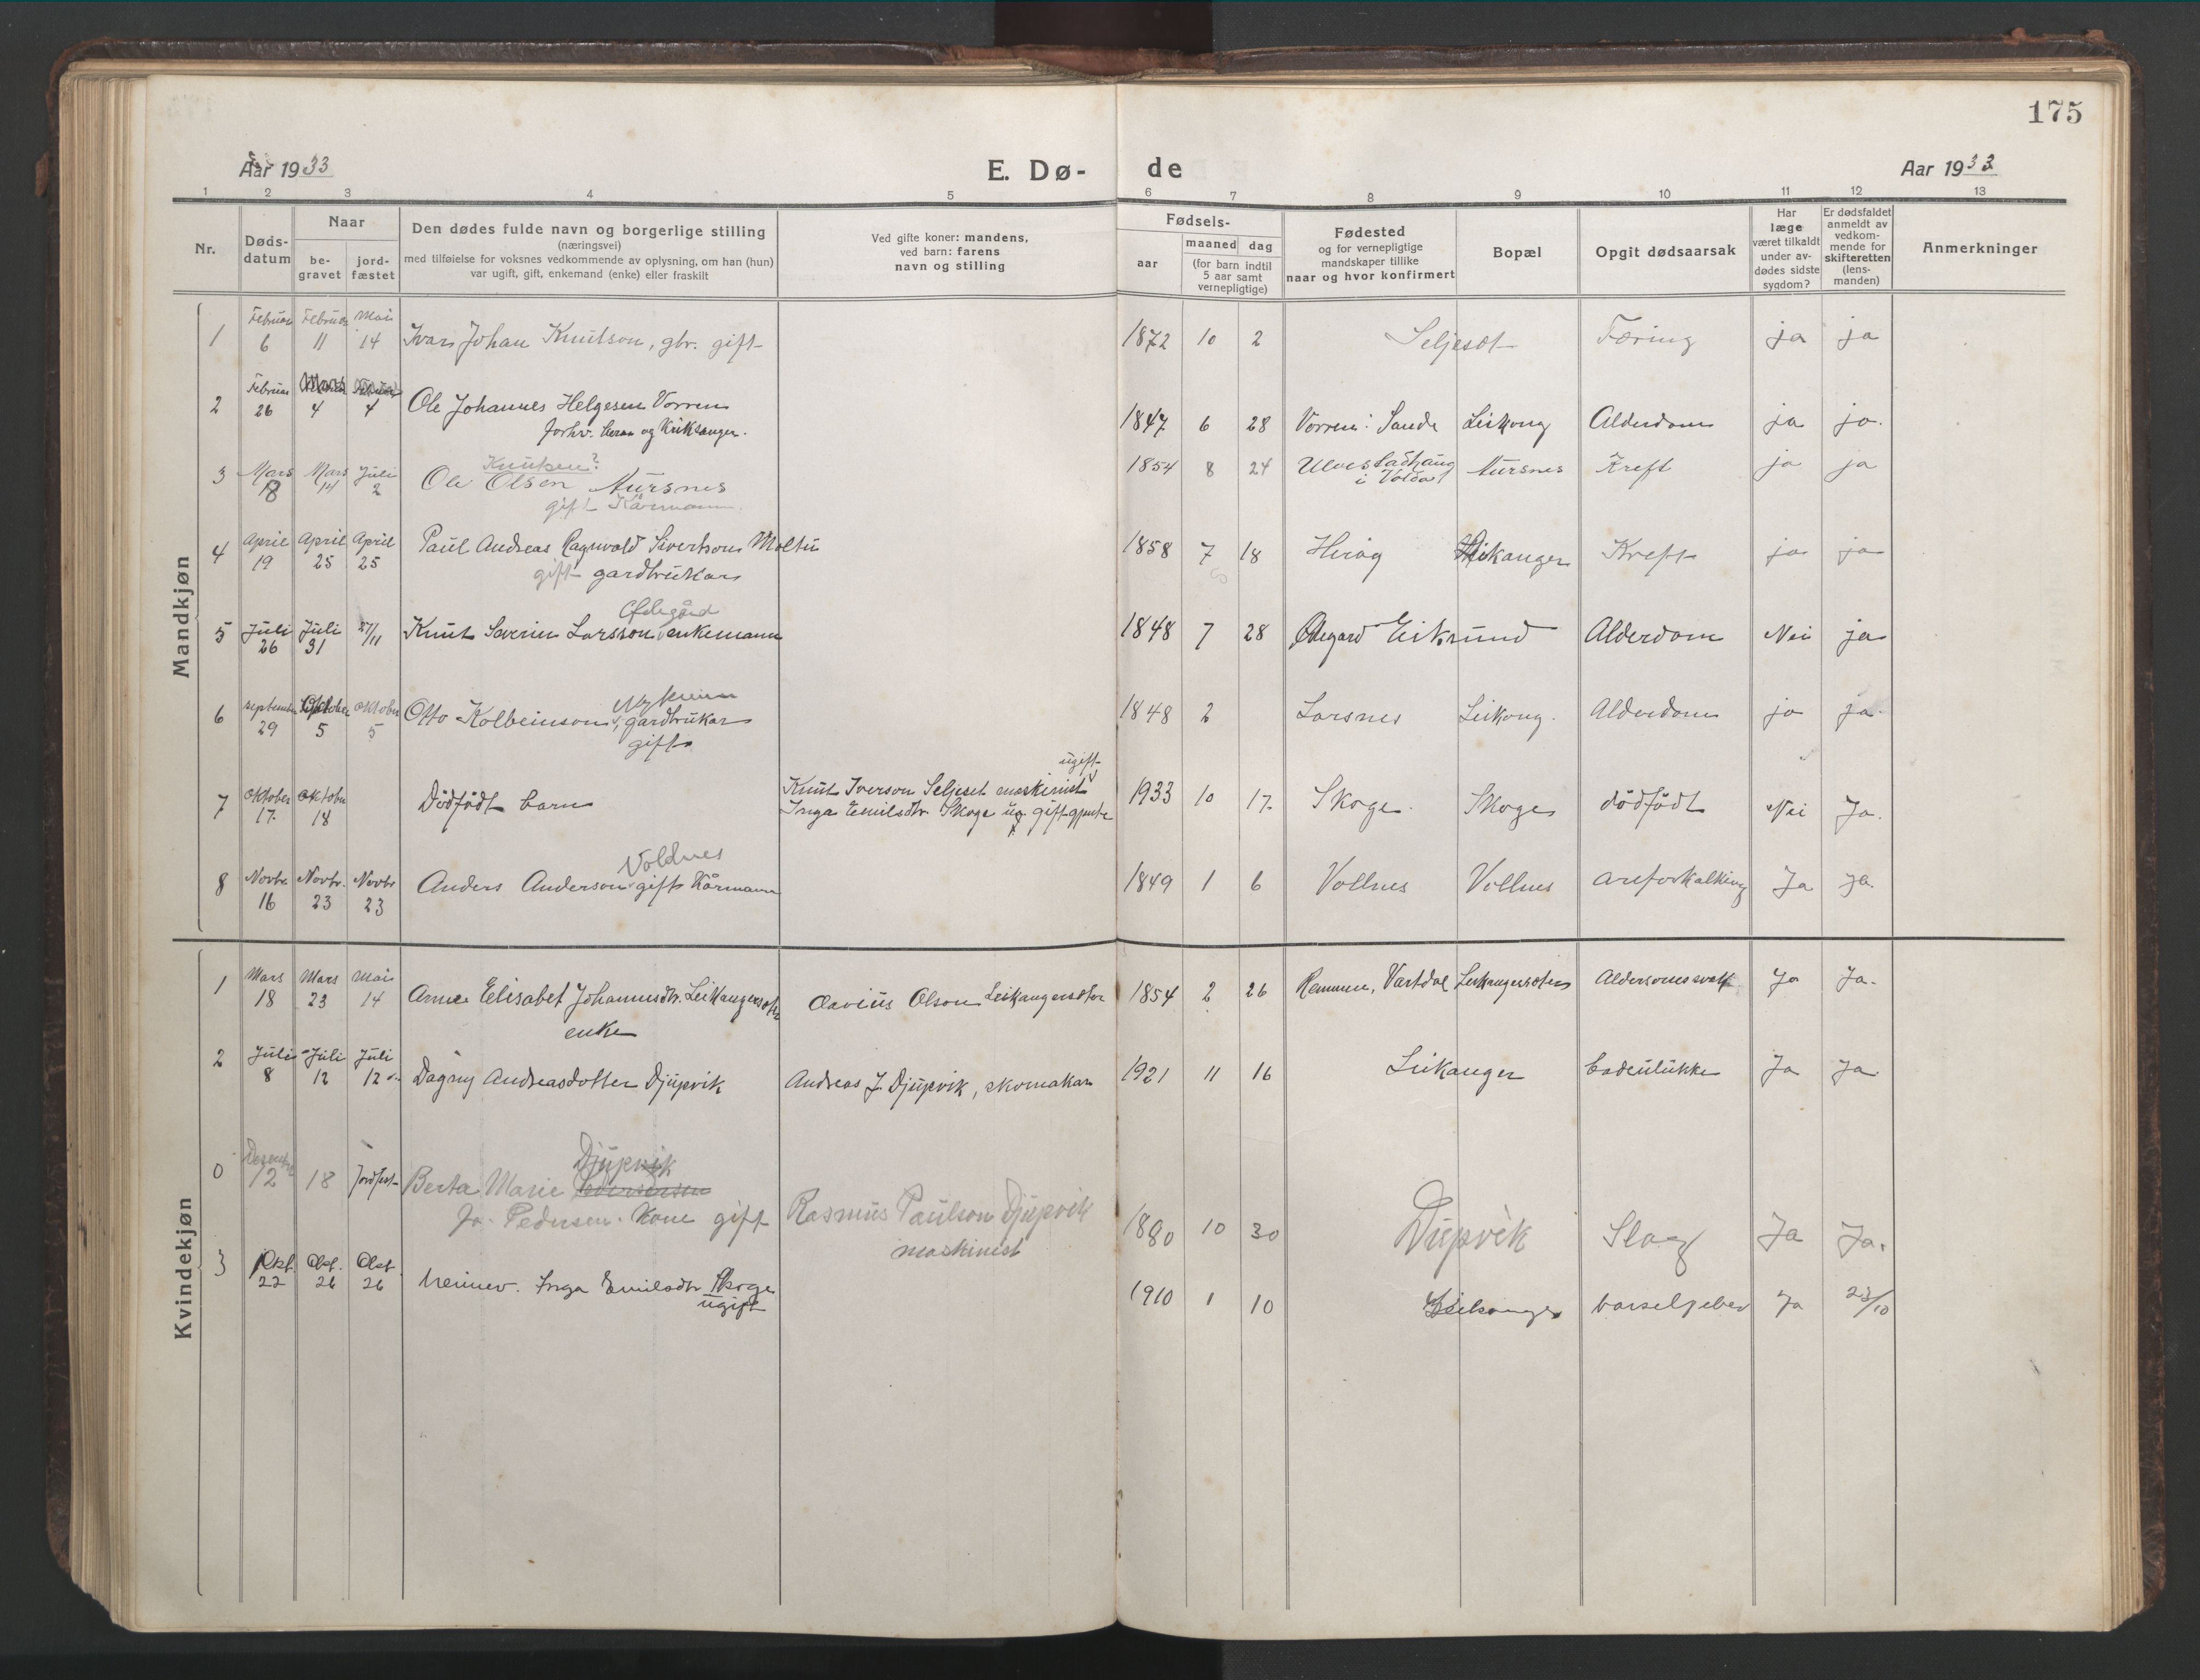 175
Aar 1933
E. Dø- de
Aar 1933
1 2 3 4 5 6 7 8 9 10 11 12 13
Nr.
Døds-
datum
Naar
be-
gravet
jord-
fæstet
Den dødes fulde navn og borgerlige stilling
(næringsvei)
med tilføielse for voksnes vedkommende av oplysning, om han (hun)
var ugift, gift, enkemand (enke) eller fraskilt
Ved gifte koner: mandens,
ved barn: farens
navn og stilling
Fødsels-
aar
maaned dag
(for barn indtil
5 aar samt
vernepligtige)
Fødested
og for vernepligtige
mandskaper tillike
naar og hvor konfirmert
Bopæl
Opgit dødsaarsak
Har
læge
været tilkaldt
under av-
dødes sidste
sygdom?
Er dødsfaldet
anmeldt av
vedkom-
mende for
skifteretten
(lens-
manden)
Anmerkninger
Mandkjøn
Februar Februar Mai
1 6 11 14 Ivar Johan Knutson, gbr. gift 1872 10 2 Seljeset Tæring ja ja
Februar
2 26 4 4 Ole Johannes Helgesen Vorren 1847 6 28 Vorren: Sande Leikong Alderdom ja ja.
forhv. lærar og Kirksanger.
Knutsen?
3 Mars 18 Mars 14 Juli 2 Ole Olsen Aursnes 1854 8 24 Ulvestadhaug i Volda Aursnes Kreft ja ja
gift Kårmann.
4 April 19 April 25 April 25 Paul Andreas Ragnvald Sivertson Moltu 1858 7 18 Hiråg Leikanger Kreft ja ja
gift gardbrukar
Ødegård
5 Juli 26 Juli 31 27/11 Knut Severin Larsson enkemann 1848 7 28 Ødegard Eiksund Alderdom Nei ja
Myrkrinn
6 September 29 Oktober 5 Oktober 5 Otto Kolbeinson, gardbrukar 1848 2 Larsnes Leikong. Alderdom ja ja.
gift
ugift
7 Oktober 17. Oktober 18 Dödfödt barn Knut Iverson Seljeset maskinist 1933 10 17. Skoge. Skoge dödfödt Nei Ja.
Inga Emilsdtr. Skoge ug. gift gjente
Voldnes
8 Novbr. 16 Novbr. 23 Novbr 23 Anders Anderson gift Kårmann 1849 1 6 Vollnes Vollnes Areforkalking Ja ja.
Kvindekjøn
1 Mars 18 Mars 23 Mai 14 Anne Elisabet Johannesdtr. Leikangersæter Olavius Olson Leikangersæter 1854 2 26 Remmen, Vartdal Leikangersæter Ja Ja.
enke
2 Juli 8 Juli 12 Juli 12 Dagny Andreasdotter Djupvik Andreas J. Djupvik, skomakar 1921 11 16 Leikanger badeulukke Ja Ja.
Djupvik
0 Desember 12 18 Jordfest Berta Marie
Jo. Pedersen. Kone gift Rasmus Paulson Djupvik 1880 10 30 Djupvik Slag Ja Ja.
maskinist
3 Okt. 22 Okt. 26 Okt 26 heimev. Inga Emilsdtr Skoge 1910 1 10 Leikanger barselfeber Ja 23/10
ugift